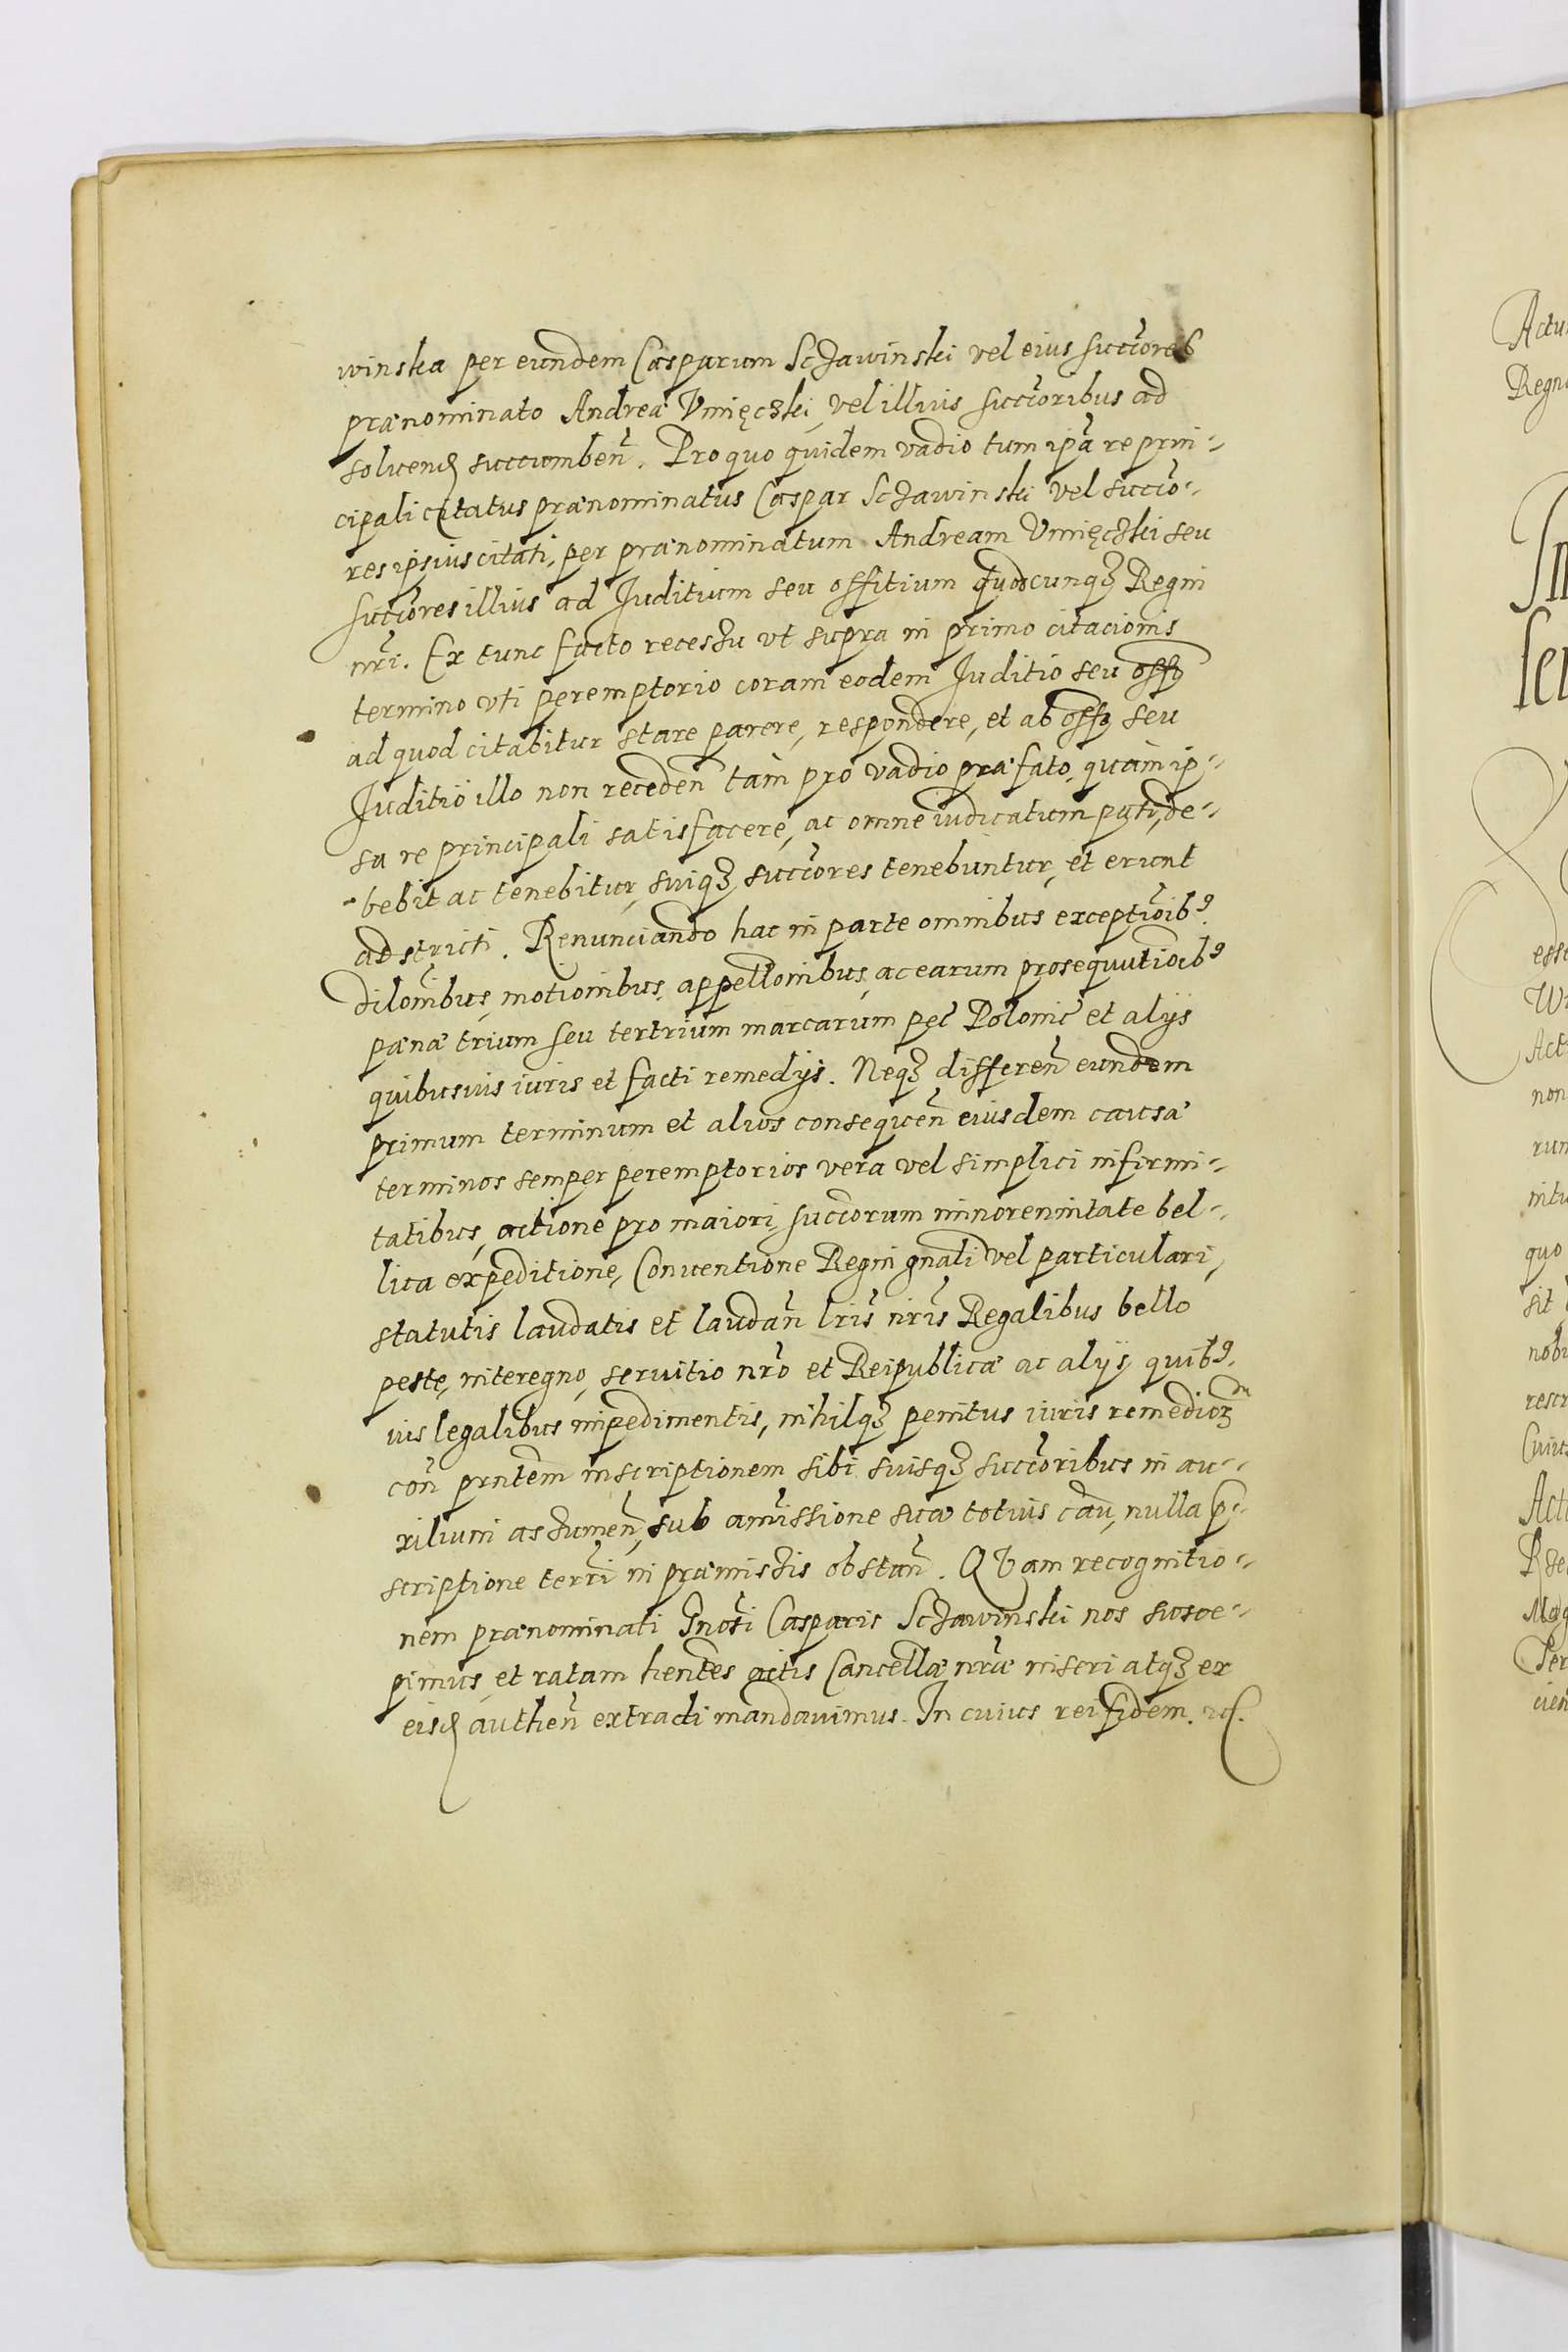 winska per eundem Casparum Sczawinski vel eius succōres
prænominato Andreæ Vmięczski, vel illius succōribus ad
soluend succumben̄. Pro quo quidem vadio tum ip̄a re prin-
cipali citatus prænominatus Caspar Sczawinski vel succō-
res ipsius citati, per prænominatum Andream Vmięczski seu
succōres illius ad Juditium seu offitium quodcunqꝫ Regni
nr̄i. Ex tunc facto recessu vt supra in primo citacionis
termino vti peremptorio coram eodem Juditio seu offꝫ
ad quod citabitur stare parere, respondere, et ab offꝫ seu
Juditio illo non receden̄ tam pro vadio præfato, quam ip-
sa re principali satisfacere, ac omne iudicatum pati, de-
bebit ac tenebitur, suiqꝫ succōres tenebuntur, et erunt
adstricti. Renunciando hac in parte omnibus exceptiōibꝰ.
dilōnibus, motionibus, appellōnibus, ac earum prosequutiōibꝰ
pænæ trium seu tertrium marcarum pec̄ Polonic̄ et alys
quibusuis iuris et facti remedys. Neqꝫ differen̄ eundem
primum terminum et alios consequen̄ eiusdem causæ
terminos semper peremptorios vera vel simplici infirmi-
tatibus, actione pro maiori, succōrum minorennitate bel-
lica expeditione, Conuentione Regni gn̄ali vel particulari,
statutis laudatis et laudan̄ lr̄is nr̄is Regalibus bello
peste, interegno, seruitio nr̄o et Reipublicæ ac alys, quibꝰ.
uis legalibus impedimentis, nihilqꝫ penitus iuris remedioꝝ
con̄ pr̄ntem inscriptionem sibi suisqꝫ succōribus in au-
xilium assumen̄, sub amissione suæ totius cau̅, nulla p̄-
scriptione terr̄i in præmissis obstan̄. QVam recognitio-
nem prænominati Gn̄osi Casparis Sczawinski nos susce-
pimus, et ratam hēntes actis Cancellæ nr̄æ inseri atqꝫ ex
eisd authen̄ extradi mandauimus. In cuius rei fidem. ꝛc.